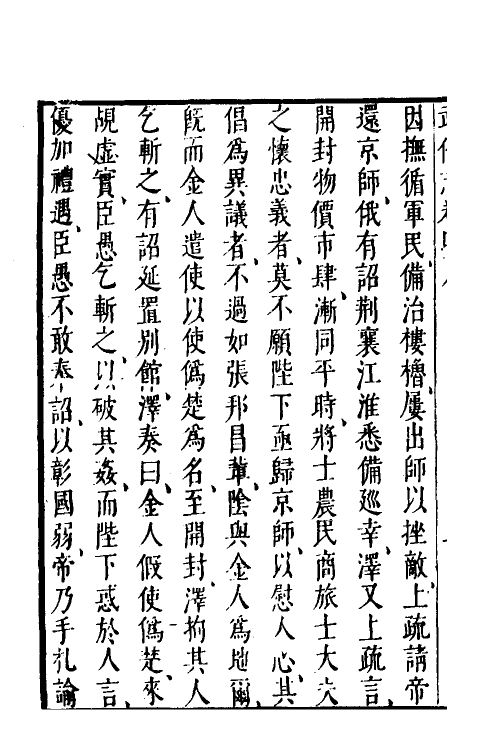 因撫循軍民、備治樓櫓、屢出師以挫敵、上疏請帝
還京師、俄有詔荆襄江淮悉備廵幸、澤又上疏言、
開封物價市肆、漸同平時、將士農民商旅士大夫
之懷忠義者、莫不願陛下亟歸京師、以慰人心、其
倡爲異議者、不過如張邦昌輩、陰與金人爲地爾、
旣而金人遣使以使僞楚爲名、至開封、澤拘其人
乞斬之、有詔延置別館、澤奏曰、金人假使僞楚、來
覘虛實、臣愚乞斬之、以破其姦、而陛下惑於人言、
優加禮遇、臣愚不敢奉詔、以彰國弱、帝乃手札諭